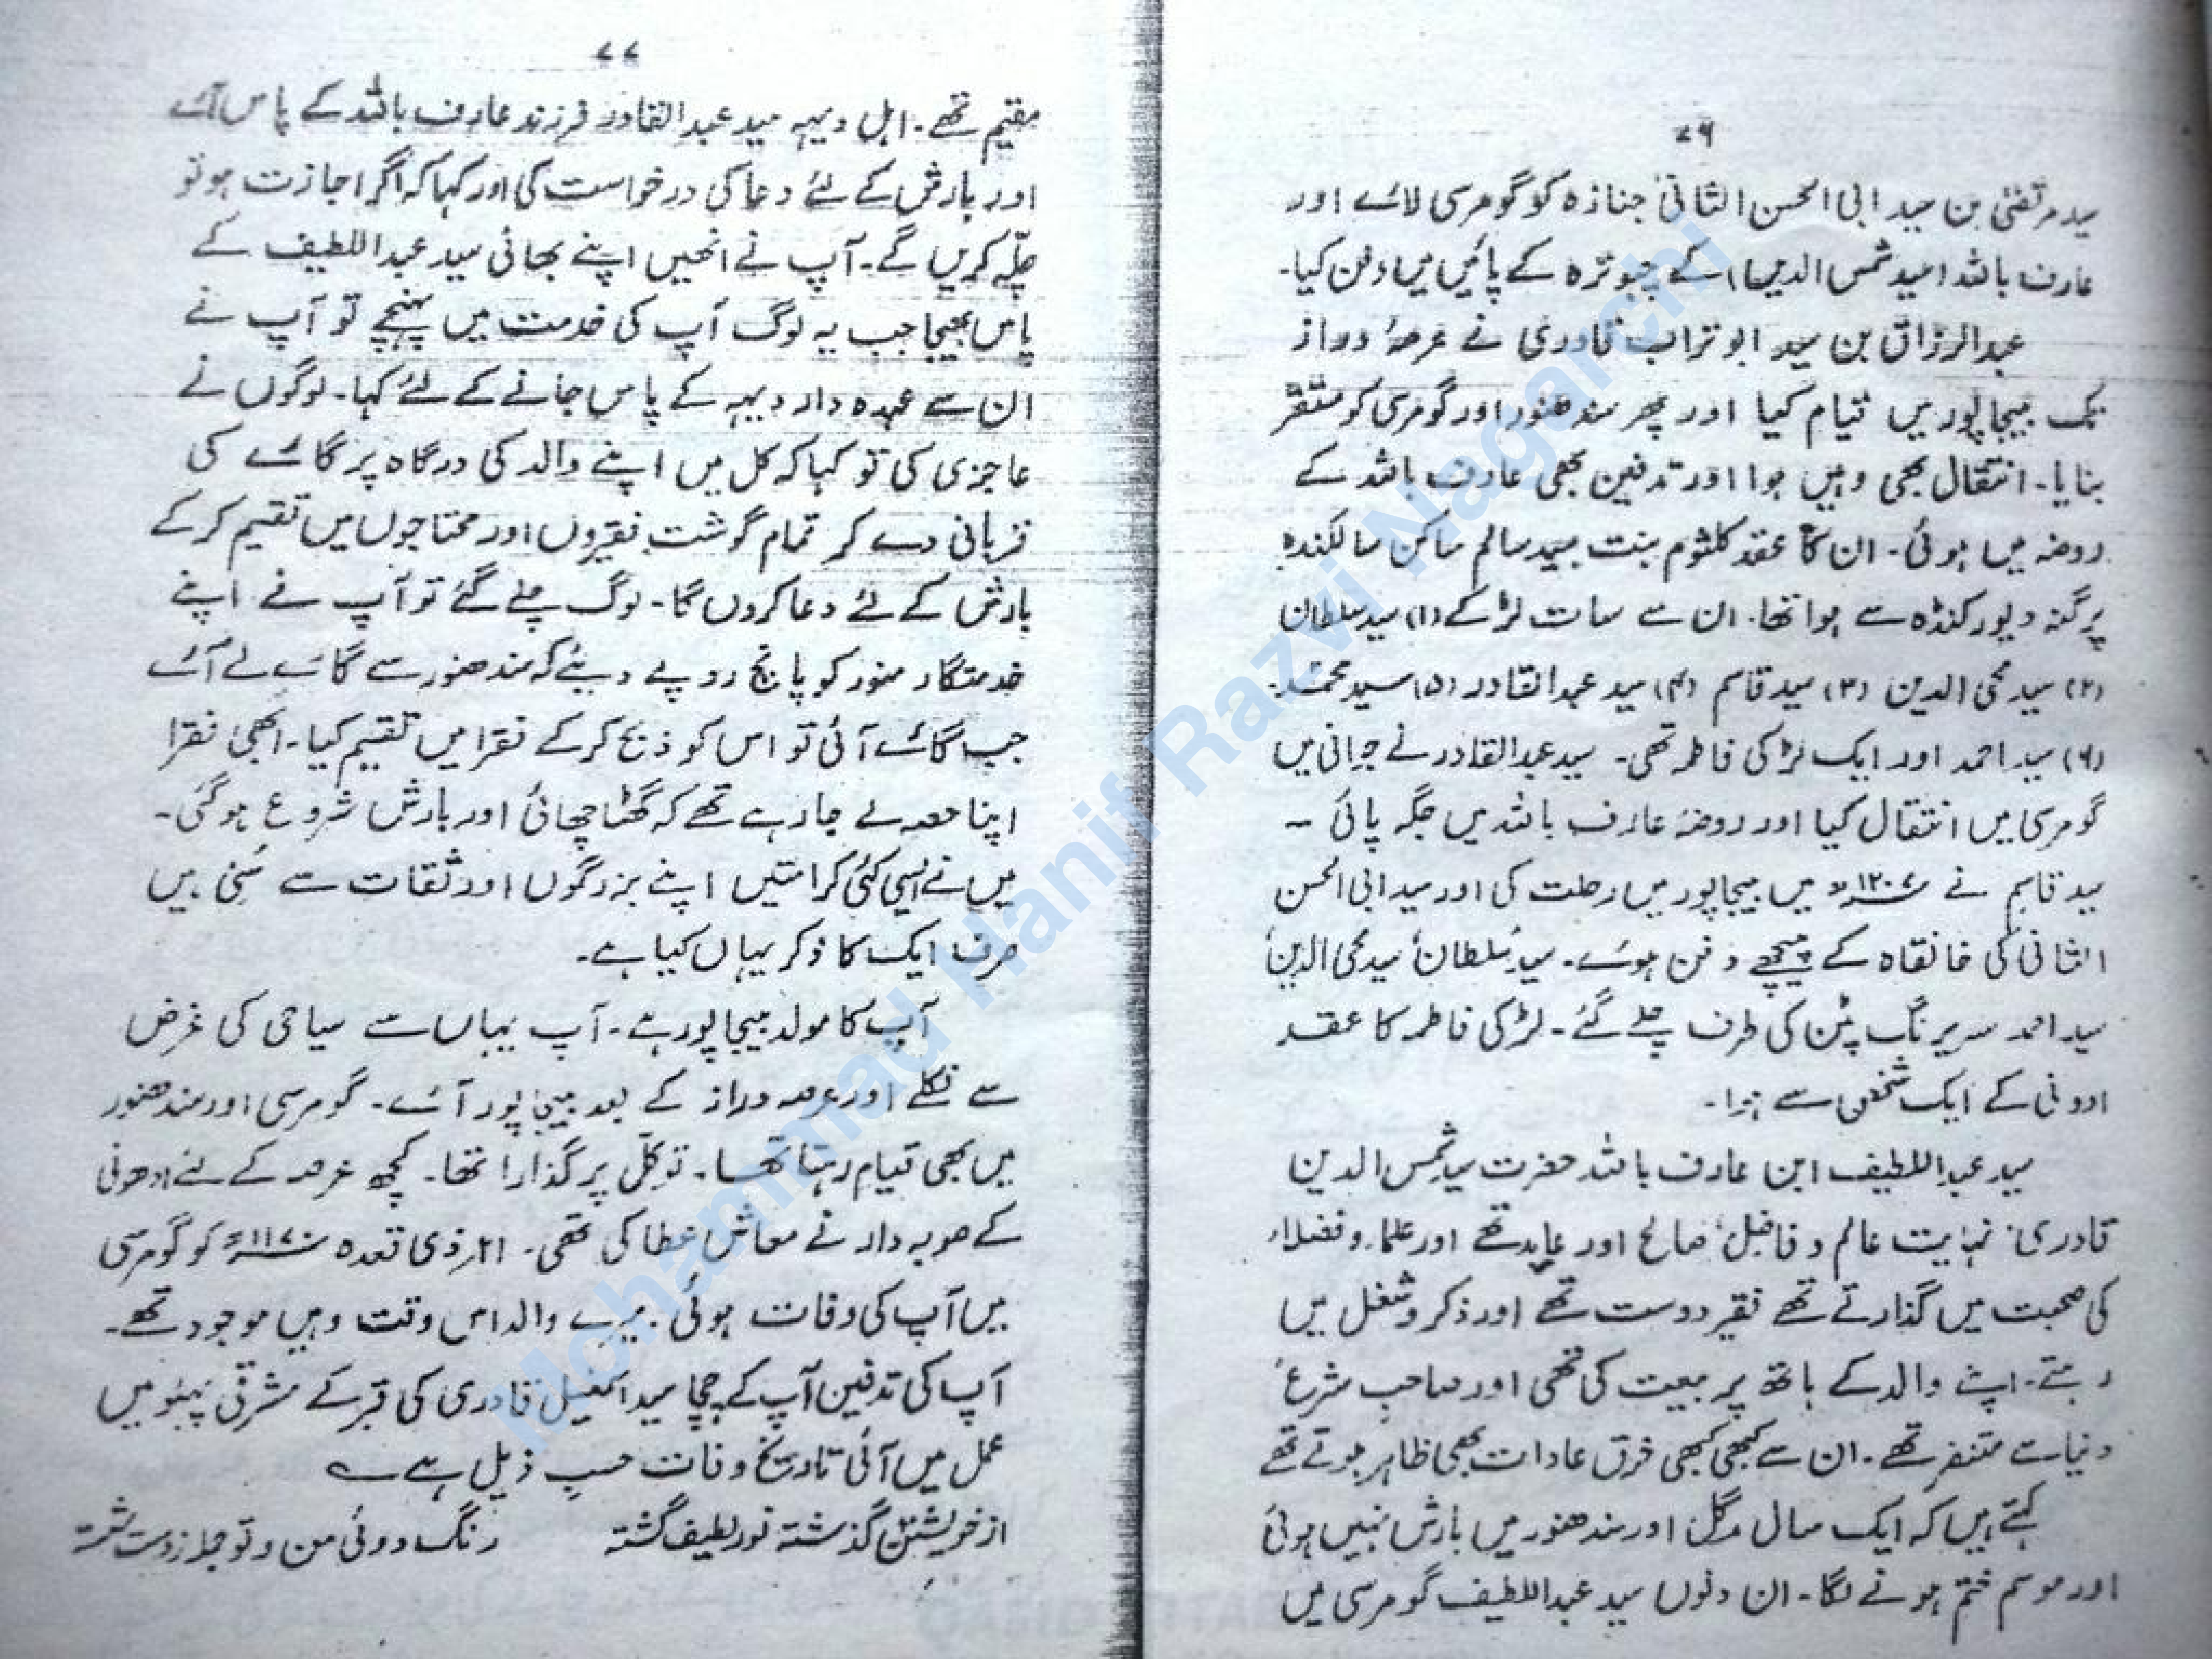 ۷۶
سید مرتضیٰ بن سید ابی الحسن الثانی جنازہ کو گومرسی لائے اور
عارف باللہ (سید شمس الدین) کے چبوترہ کے پائیں میں دفن کیا۔
عبدالرزاق بن سید ابو تراب قادری نے عرصۂ دراز
تک بیجاپور میں قیام کیا اور پھر مندھنور اور گومرسی کو مستقر
بنایا۔ انتقال بھی وہیں ہوا اور تدفین بھی عارف باللہ کے
روضہ میں ہوئی۔ ان کا عقد کلثوم بنت سید سالم ساکن سالکندہ
پرگنہ دیورکنڈہ سے ہوا تھا۔ ان سے سات لڑکے (۱) سید سلطان
(۲) سید محی الدین (۳) سید قاسم (۴) سید عبدالقادر (۵) سید محمد
(۶) سید احمد اور ایک لڑکی فاطمہ تھی۔ سید عبدالقادر نے جوانی میں
گومرسی میں انتقال کیا اور روضۂ عارف باللہ میں جگہ پائی ۔
سید قاسم نے ۱۲۰۷ھ میں بیجاپور میں رحلت کی اور سید ابی الحسن
الثانی کی خانقاہ کے پیچھے دفن ہوئے۔ سید سلطان، سید محی الدین
سید احمد سریرنگ پٹن کی طرف چلے گئے۔ لڑکی فاطمہ کا عقد
ادونی کے ایک شخص سے ہوا۔
سید عبداللطیف ابن عارف باللہ حضرت سید شمس الدین
قادری: نہایت عالم و فاضل، صالح اور عابد تھے اور علماء و فضلاء
کی صحبت میں گذارتے تھے فقیر دوست تھے اور ذکر و شغل میں
رہتے۔ اپنے والد کے ہاتھ پر بیعت کی تھی اور صاحب شرع
دنیا سے متنفر تھے۔ ان سے کبھی کبھی خرق عادات بھی ظاہر ہوتے تھے
کہتے ہیں کہ ایک سال مدگل اور مندھنور میں بارش نہیں ہوئی
اور موسم ختم ہونے لگا۔ ان دنوں سید عبداللطیف گومرسی میں
۷۷
مقیم تھے۔ اہل دیہہ سید عبدالقادر فرزند عارف باللہ کے پاس آئے
اور بارش کے لئے دعا کی درخواست کی اور کہا کہ اگر اجازت ہو تو
چلّہ کریں گے۔ آپ نے انھیں اپنے بھائی سید عبداللطیف کے
پاس بھیجا جب یہ لوگ آپ کی خدمت میں پہنچے تو آپ نے
ان سے عہدہ دار دیہہ کے پاس جانے کے لئے کہا۔ لوگوں نے
عاجزی کی تو کہا کہ کل میں اپنے والد کی درگاہ پر گائے کی
قربانی دے کر تمام گوشت فقیروں اور محتاجوں میں تقسیم کرکے
بارش کے لئے دعا کروں گا۔ لوگ چلے گئے تو آپ نے اپنے
خدمتگار منور کو پانچ روپے دیئے کہ مندھنور سے گائے لے آئے
جب گائے آئی تو اس کو ذبح کرکے فقرا میں تقسیم کیا۔ ابھی فقرا
اپنا حصہ لے جا رہے تھے کہ گھٹا چھائی اور بارش شروع ہوگئی۔
میں نے ایسی کئی کرامتیں اپنے بزرگوں اور ثقات سے سُنی ہیں
صرف ایک کا ذکر یہاں کیا ہے۔
آپ کا مولد بیجاپور ہے۔ آپ یہاں سے سیاحی کی غرض
سے نکلے اور عرصہ دراز کے بعد بیجاپور آئے۔ گومرسی اور مندھنور
میں بھی قیام رہتا تھا۔ توکّل پر گذارا تھا۔ کچھ عرصہ کے لئے ادھونی
کے صوبہ دار نے معاش عطا کی تھی۔ ۲۱؍ ذی قعدہ ۱۱۷۰ھ کو گومرسی
میں آپ کی وفات ہوئی۔ میرے والد اس وقت وہیں موجود تھے۔
آپ کی تدفین آپ کے چچا سید اسمعیل قادری کی قبر کے مشرقی پہلو میں
عمل میں آئی تاریخ وفات حسب ذیل ہے ؎
از خویشتن گذشتہ نور لطیف گشتہ رنگ دوئی من و تو شستہ
Mohammad Hanif Razvi Nagarchi